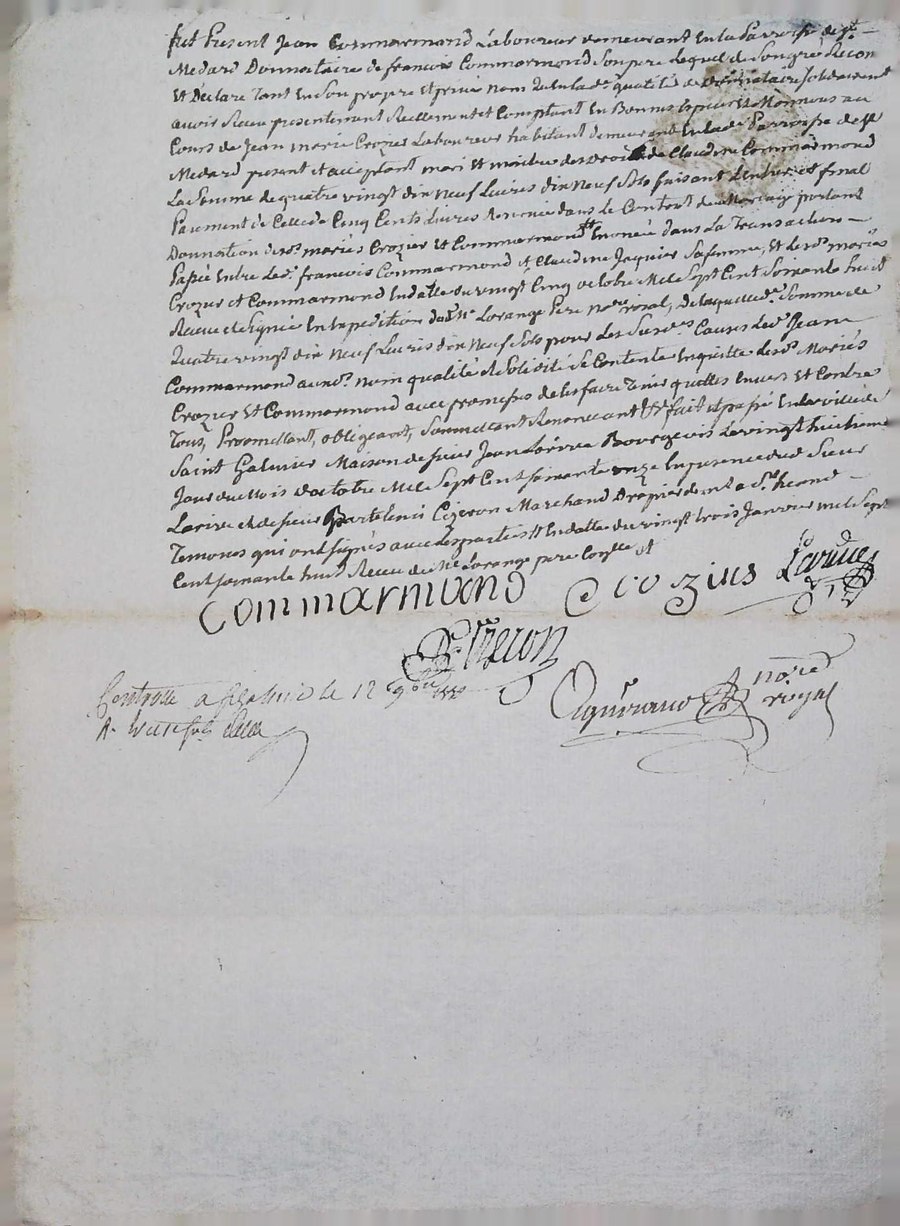 fut Present Jean Commarmond Laboureur demeurant En la Parroisse de St.
Medard Donnataire de francois Commarmond son pere Lequel de son gré Recon
Et Déclare Tant En son propre et privé nom qu'en la de. qualité de Donnataire solidairement
avoir Receu presentement Reellement et Comptant En Bonnes Especes Et Monnoies au
Cours de Jean marie Crozier Laboureur habitant demeurant En la de. Parroisse de St
Medard present et acceptant mari Et maitre des Droits de Claudine Commarmond
La somme de quatre vingt dix Neuf Livres dix Neuf Sols faisant L'entier et final
Paiement de Celle de Cinq Cents Livres Enoncée dans le Contrat de Mariage portant
Donnation des mariés Crozier et Commarmond Et Enoncé dans La Transaction
Passée Entre led. francois Commarmond et Claudine Jaquier sa femme, Et lesd. mariés
Crozier et Commarmond En datte du vingt Cinq octobre Mil Sept Cent Soixante huit
Receue et Signée En Expédition de Me. Lorange Pere nore. roial, de laquelle de. Somme de
Quatre vingt dix Neuf Livres dix Neuf Sols pour les Susdes. Causes led. Jean
Commarmond auxd. nom qualité et Solidité Se Contente En quitte lesd. Mariés
Crozier Et Commarmond avec promesses de les faire Tenir quittes Envers Et Contre
Tous, Promettant, obligeant, Soumettant Renoncant fait et passé En la ville de
Saint Galmier Maison de Sieur Jean Bourgeois Le vingt huitieme
Jour du Mois d'octobre Mil Sept Cent soixante onze En presence dud. Sieur
et de sieur Cizeron Marchand Drapier dud. St heand
Temoins qui ont signés avec les parties En datte du vingt trois Janvier mil Sept
Cent soixante huit Receu de Me Lorange pere
Commarmond Crozier
Cizeron
Controllé a St Galmier le 12 9bre
nore.
royal